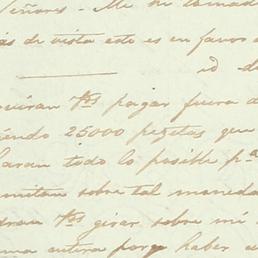 Señores. Me he tomado
ás de vista este es en favor d
id de
pagar fuera d
ando 25000 pesetas que
aran todo lo posible pª
mitan sobre tal moneda
dran Vos girar sobre mi
ma entera porq haber